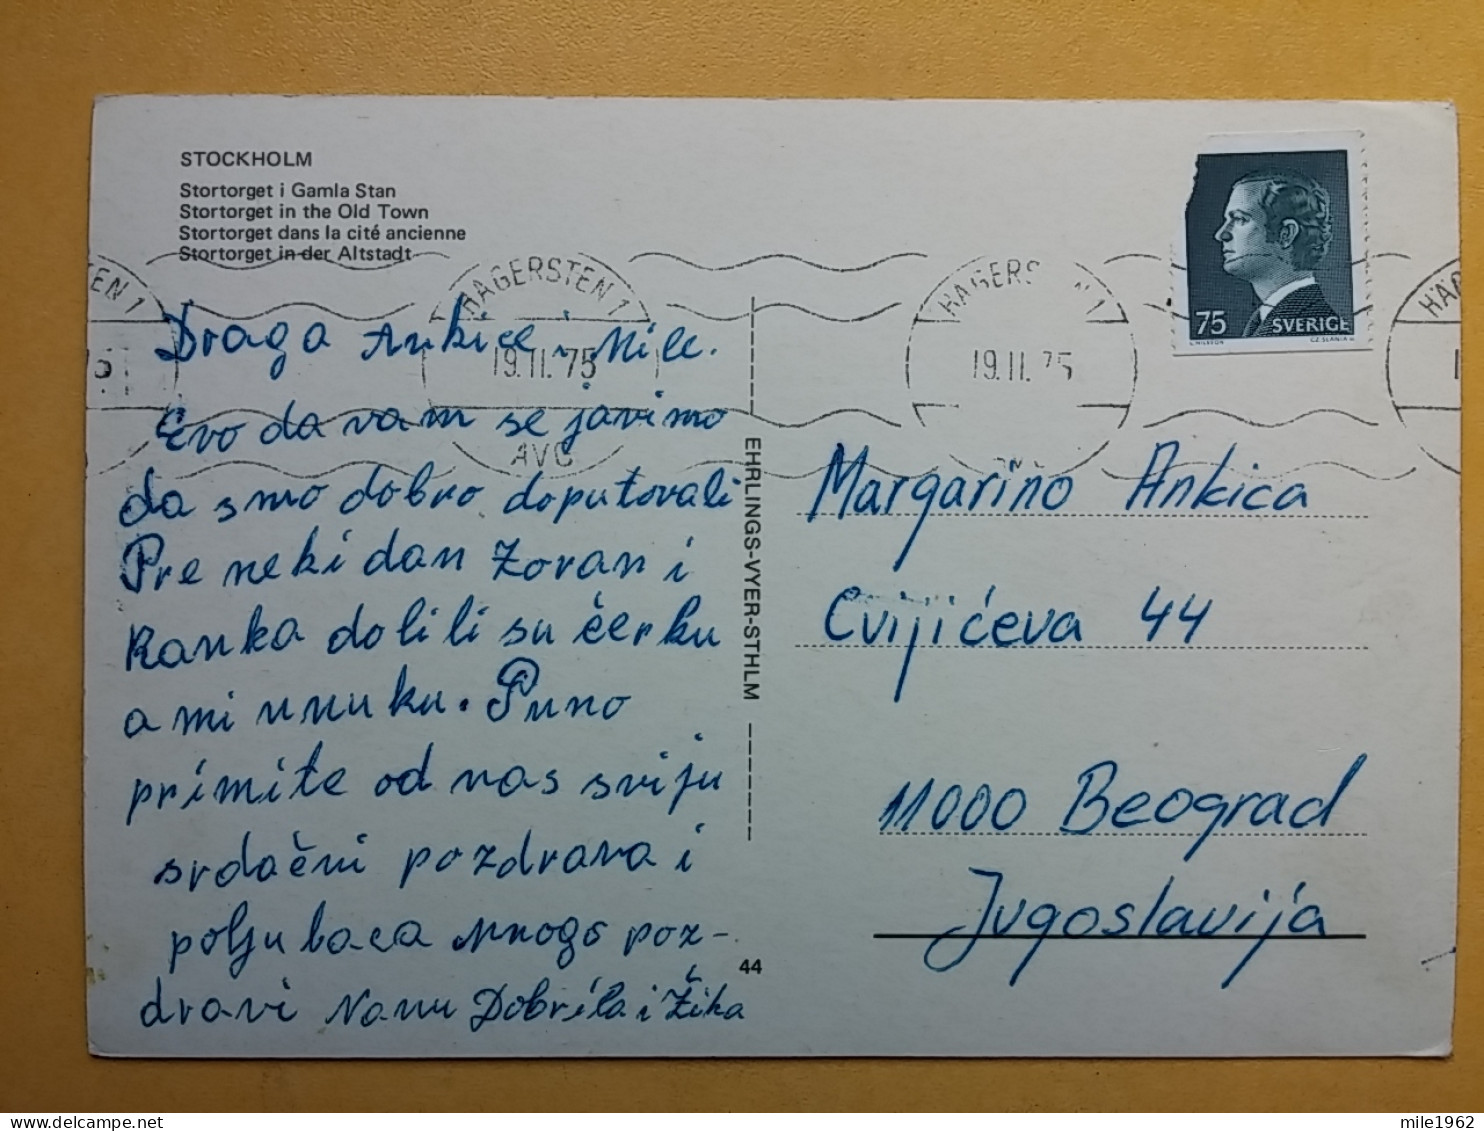 STOCKHOLM
Stortorget i Gamla Stan
Stortorget in the Old Town
Stortorget dans la cité ancienne
Stortorget in der Altstadt
TEN 1
75
HÄGERSTEN 1
19.11.75
AVG
HÄGERS EN 1
19.11.75
AVG
HÄG
1
75 SVERIGE
C.Z. SLANIA SC
Draga Ankice i Mile.
Evo da vam se javimo
da smo dobro doputovali
Pre neki dan Zoran i
Ranka dolili su ćerku
a mi unuku. Puno
primite od nas sviju
srdačni pozdrava i
poljubaca Mnogo poz-
dravi Nanu Dobrila i Žika
EHRLINGS-VYER-STHLM
44
Margarino Ankica
Cvijićeva 44
11000 Beograd
Jugoslavija
mile1962